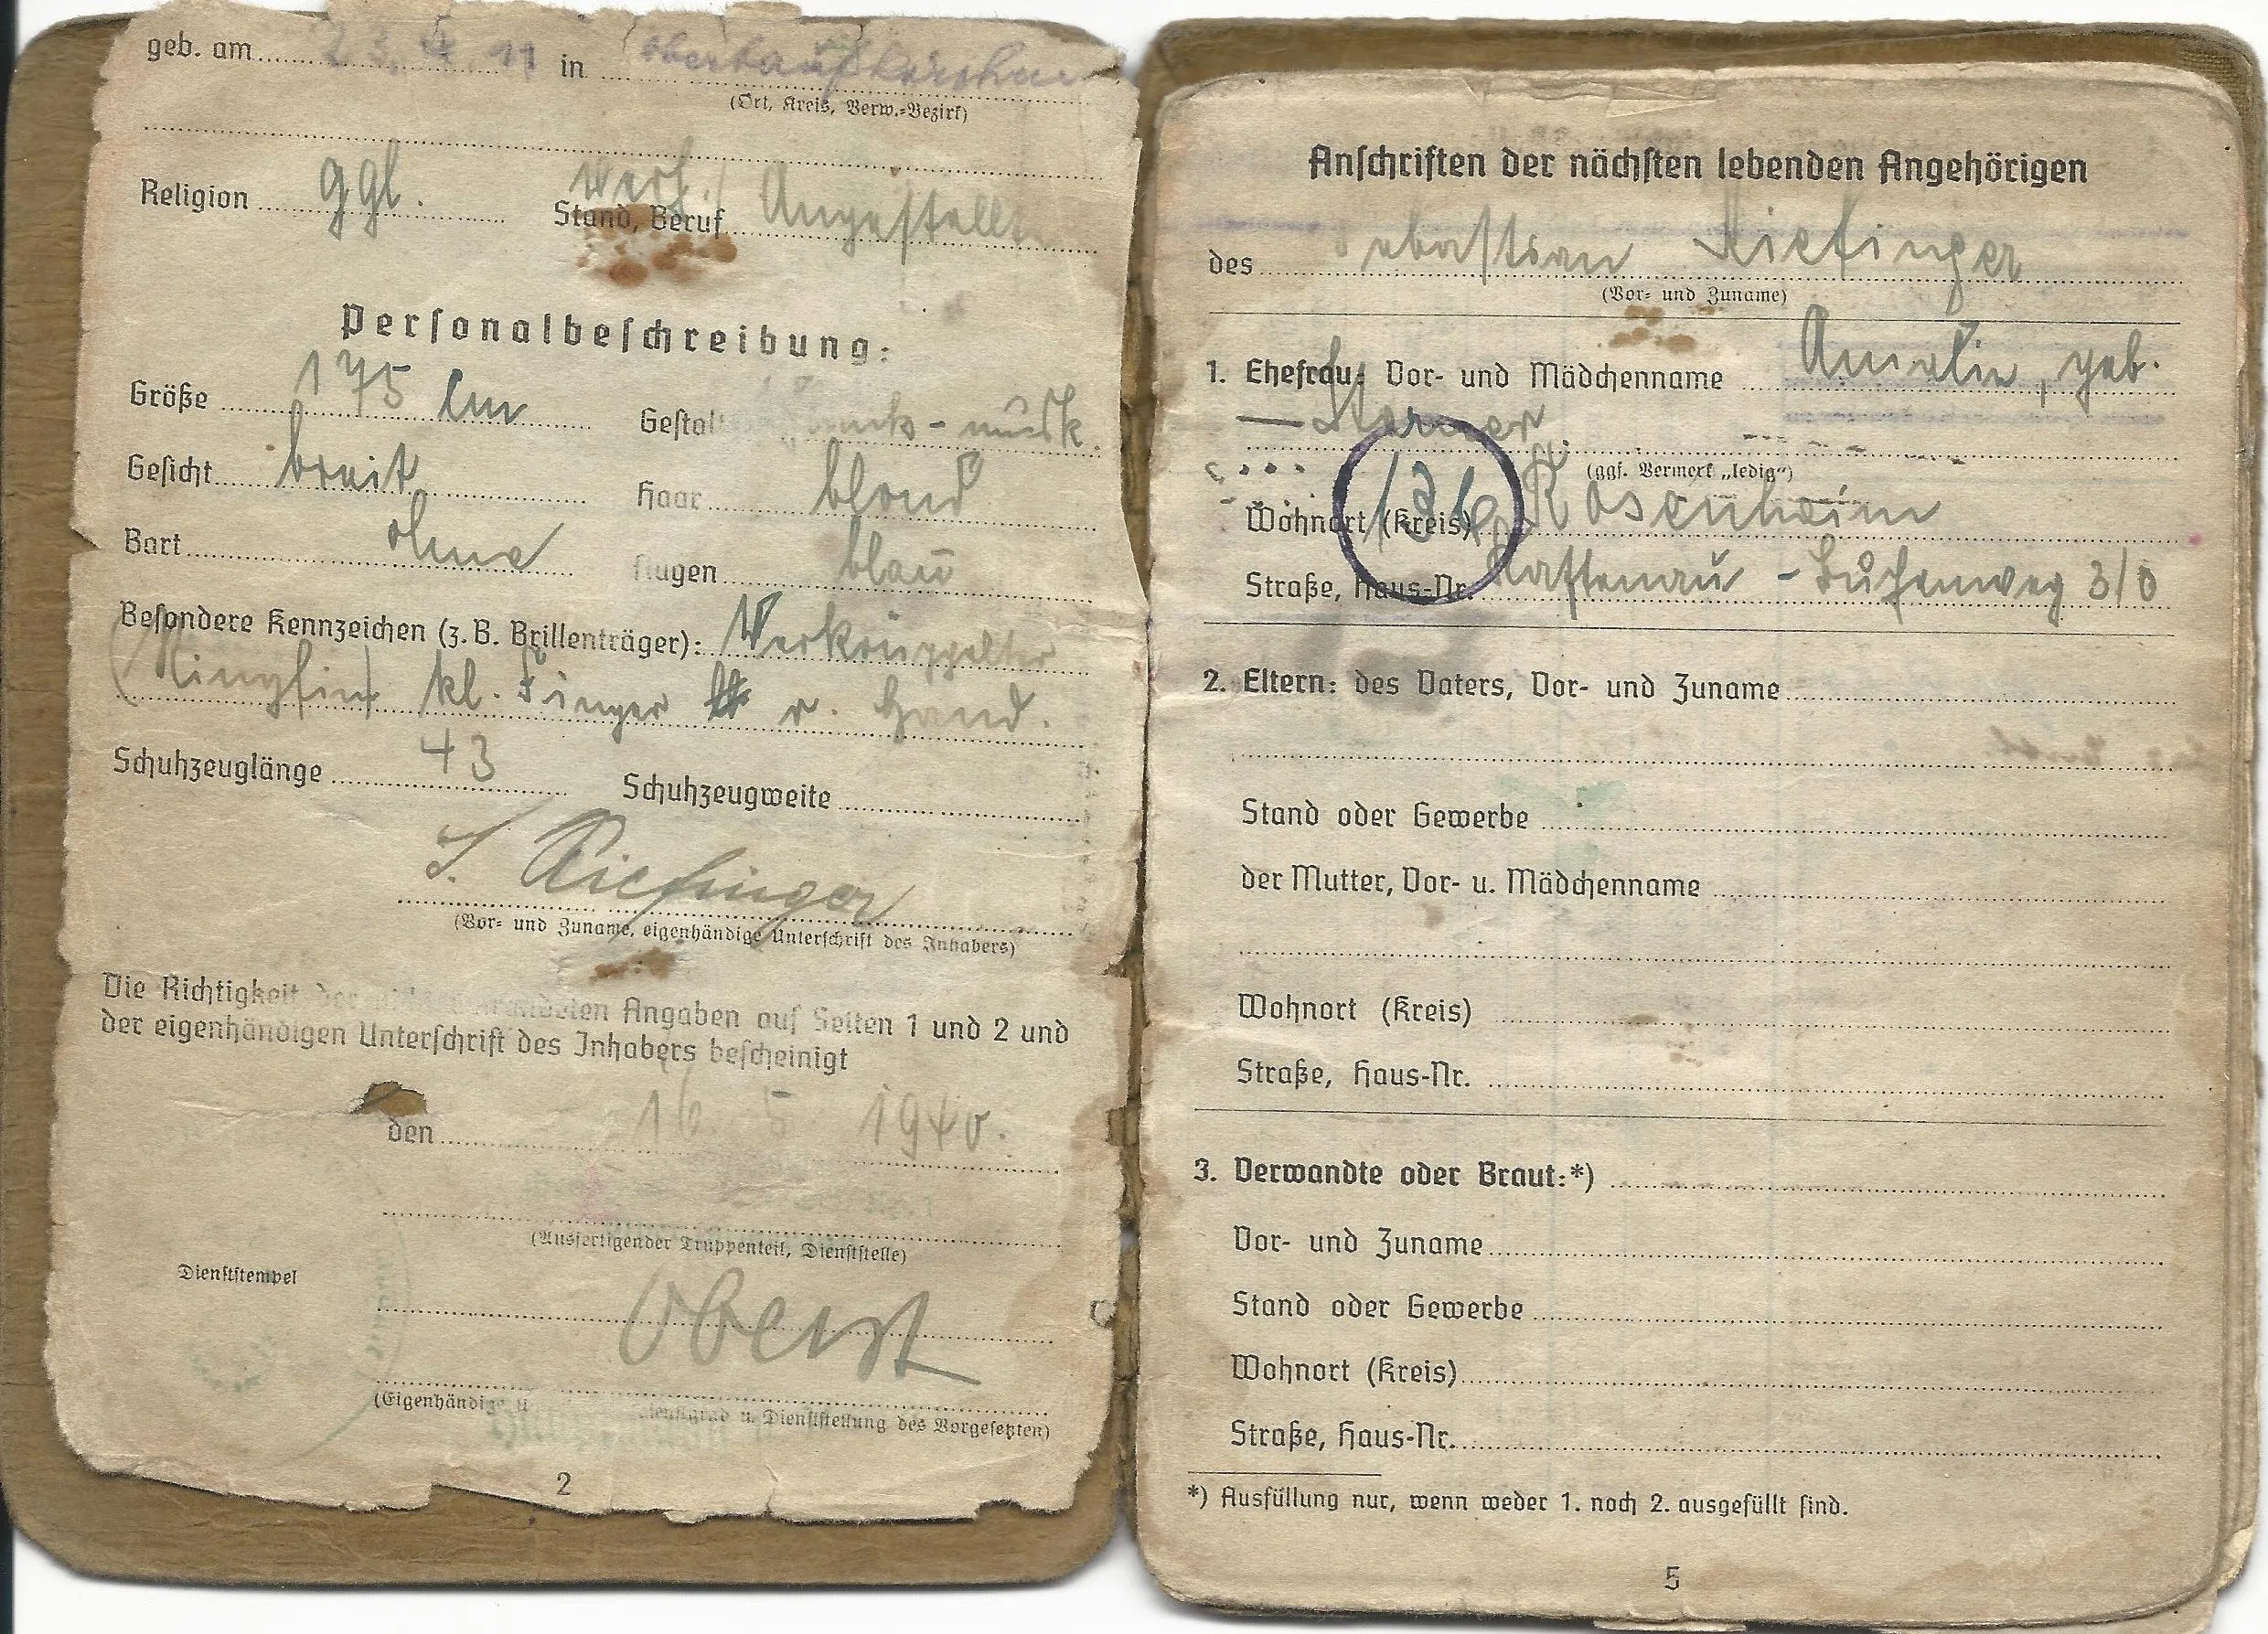 geb. am 23. 4. 11 in Obertaufkirchen
(Ort, Kreis, Verw.-Bezirk)
Religion ggl. Stand, Beruf Angestellt
Personalbeschreibung:
Größe 175 cm Gestalt musk.
Gesicht breit Haar blond
Bart ohne Augen blau
Besondere Kennzeichen (z. B. Brillenträger): Verkrüppelter
(Ringfin) kl. Finger r. Hand.
Schuhzeuglänge 43 Schuhzeugweite
S. Riefinger
(Vor- und Zuname, eigenhändige Unterschrift des Inhabers)
Die Richtigkeit der Angaben auf Seiten 1 und 2 und
der eigenhändigen Unterschrift des Inhabers bescheinigt
den 16. 5 1940.
(Ausfertigender Truppenteil, Dienststelle)
Dienststempel
Oberst
(Eigenhändige Dienstgrad u. Dienststellung des Vorgesetzten)
2
Anschriften der nächsten lebenden Angehörigen
des Sebastian Riefinger
(Vor- und Zuname)
1. Ehefrau: Vor- und Mädchenname Amalie, geb.
(ggf. Vermerk „ledig“)
136
Wohnort (Kreis) Rosenheim
Straße, Haus-Nr. Kastenau - 3/0
2. Eltern: des Vaters, Vor- und Zuname
Stand oder Gewerbe
der Mutter, Vor- u. Mädchenname
Wohnort (Kreis)
Straße, Haus-Nr.
3. Verwandte oder Braut:*)
Vor- und Zuname
Stand oder Gewerbe
Wohnort (Kreis)
Straße, Haus-Nr.
*) Ausfüllung nur, wenn weder 1. noch 2. ausgefüllt sind.
5